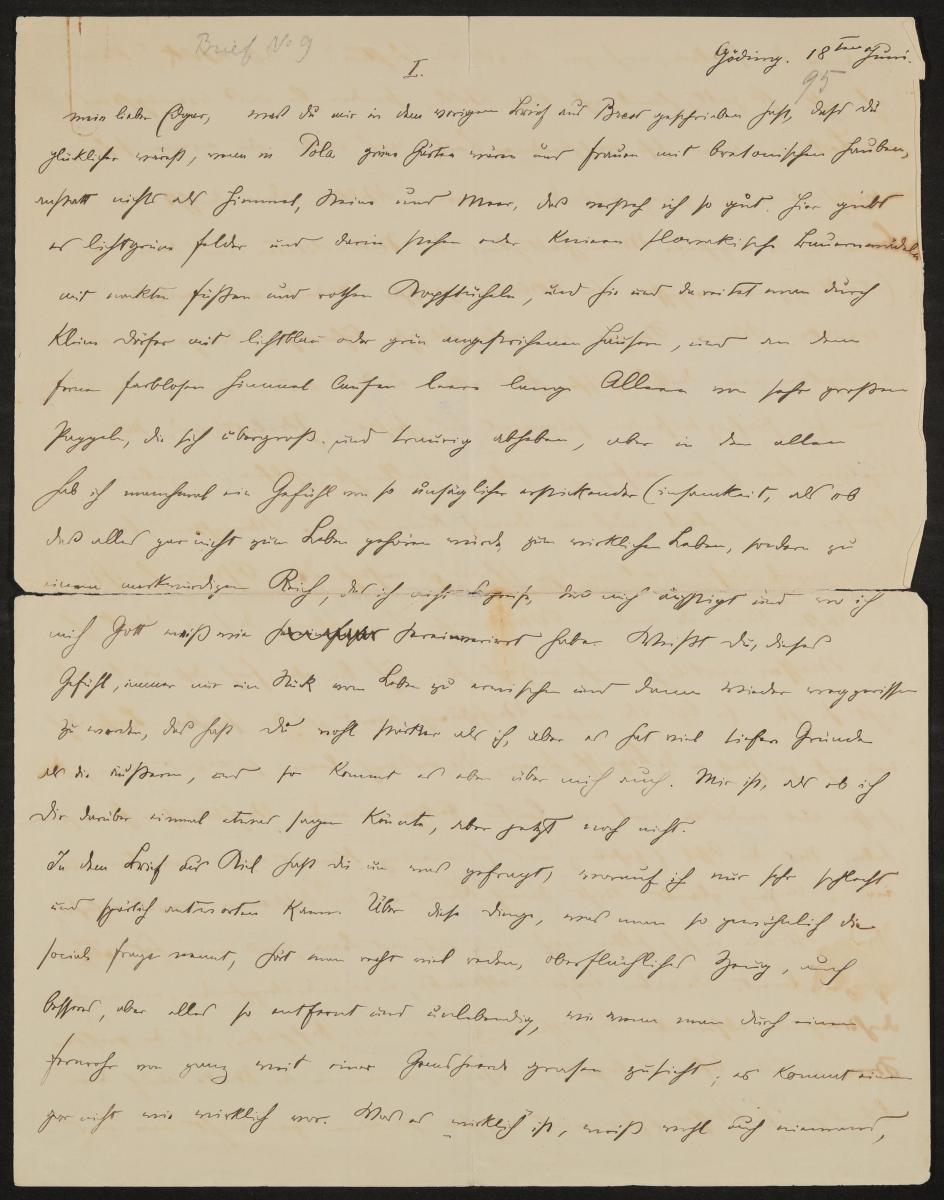 Brief No 9
Göding. 18ten Juni.
95
I.
mein lieber Edgar, was du mir in dem vorigen Brief aus Brest geschrieben hast, dass du
glücklicher wärest, wenn in Pola grüne Gärten wären und Frauen mit bretonischen Hauben,
anstatt nichts als Himmel, Steine und Meer, das versteh ich so gut. Hier giebt
es lichtgrüne Felder und darin stehen oder knieen slowakische Bauernmädeln
mit nackten Füßen und rothen Kopftücheln, und hie und da reitet man durch
kleine Dörfer mit lichtblau oder grün angestrichenen Häusern, und an dem
fernen farblosen Himmel laufen leere lange Alleen von sehr großen
Pappeln, die sich übergroß und traurig abheben, aber in dem allen
hab ich manchmal ein Gefühl von so unsäglicher erstickender Einsamkeit, als ob
das alles gar nicht zum Leben gehören würde, zum wirklichen Leben, sondern zu
einem merkwürdigen Reich, das ich nicht begreife, das mich ängstigt und wo ich
mich Gott weiß wie hereinverirrt habe. Weißt Du, dieses
Gefühl, immer nur ein Stück vom Leben zu erwischen und dann wieder weggerissen
zu werden, das hast Du wohl stärker als ich, aber es hat viel tiefere Gründe
als die äußern, und so kommt es eben über mich auch. Mir ist, als ob ich
Dir darüber einmal etwas sagen könnte, aber jetzt noch nicht.
In dem Brief aus Kiel hast du um was gefragt, worauf ich nur sehr schlecht
und spärlich antworten kann. Über diese Dinge, was man so gewöhnlich die
sociale Frage nennt, hört man recht viel reden, oberflächliches Zeug, auch
besseres, aber alles so entfernt und unlebendig, wie wenn man durch einen
Fernrohr von ganz weit einer Gemsheerde grasen zusieht; es kommt einem
gar nicht wie wirklich vor. Was es wirklich ist, weiß wohl auch niemand,